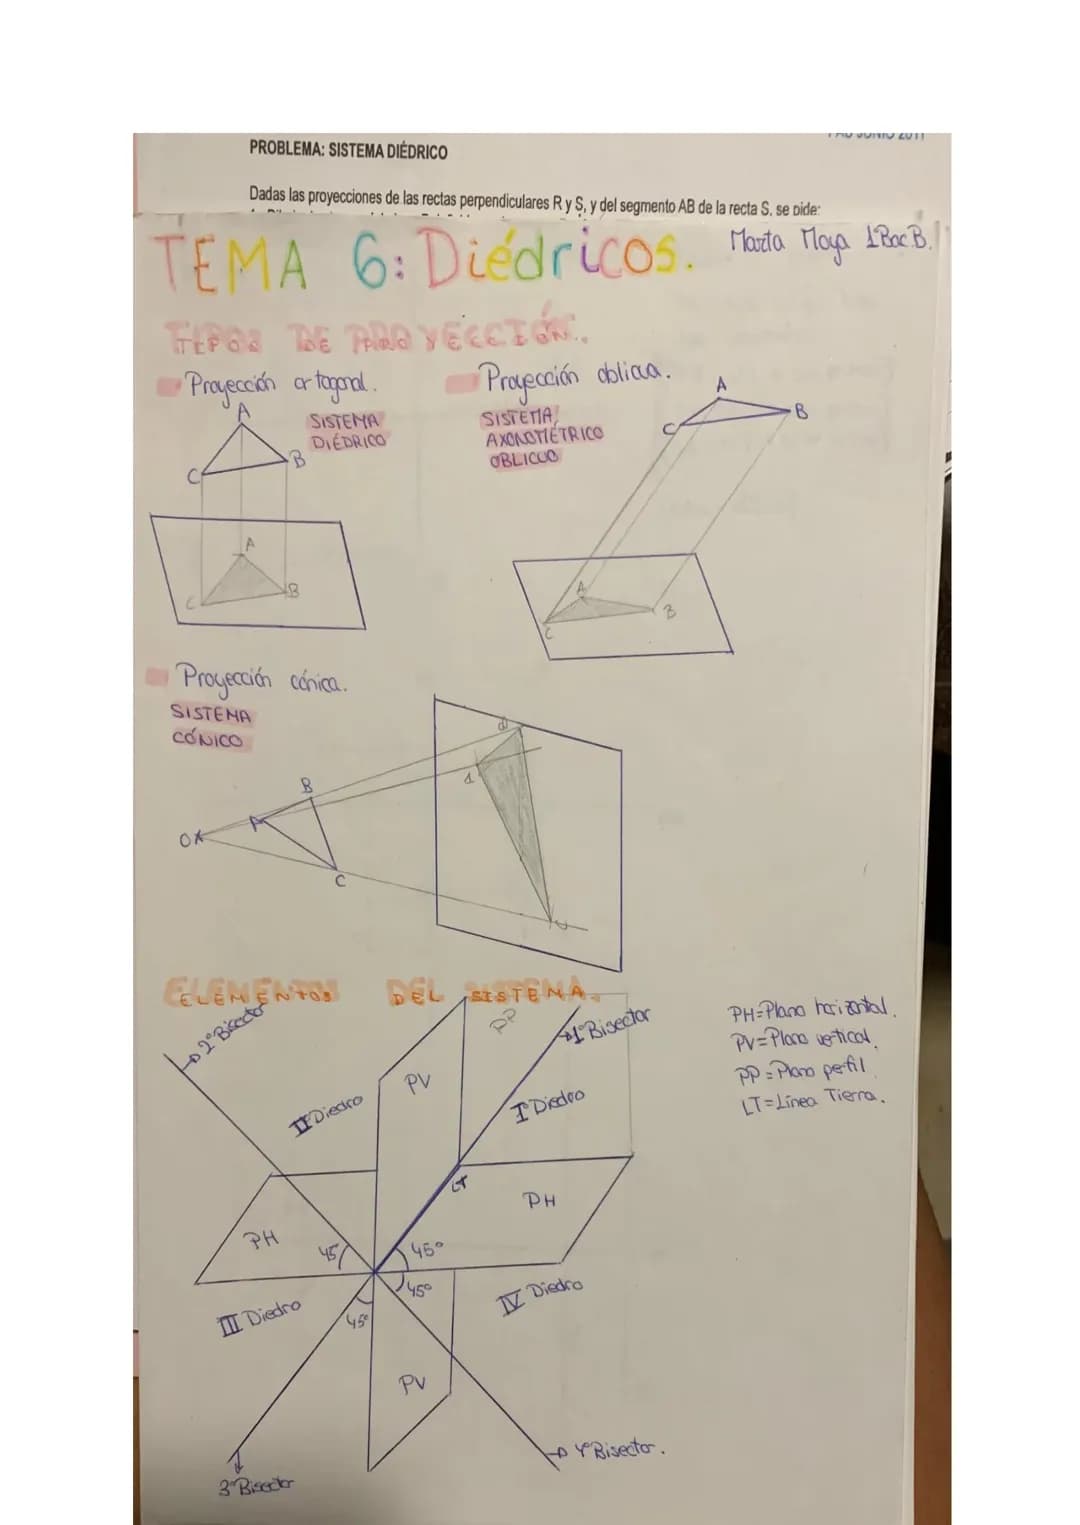 PAU JUNIO 2011
PROBLEMA: SISTEMA DIÉDRICO
Dadas las proyecciones de las rectas perpendiculares R y S, y del segmento AB de la recta S, se pide:
TEMA 6: Diédricos.
Marta Moya 1ºBac B.
TIPOS DE PROYECCIÓN.
Proyección ortogonal.
SISTEMA
DIÉDRICO
A
C
B
A
C
B
Proyección oblicua.
SISTEMA
AXONOMÉTRICO
OBLICUO
A
B
C
A
B
C
Proyección cónica.
SISTEMA
CÓNICO
B
A
O
C
ELEMENTOS DEL SISTEMA.
2ºBisector
PP
1ºBisector
PV
II Diedro
IºDiedro
LT
PH
PH
45
45º
45º
45º
III Diedro
IV Diedro
PV
3ºBisector
4ºBisector.
PH=Plano horizontal.
PV=Plano vertical.
PP=Plano perfil
LT=Línea Tierra.